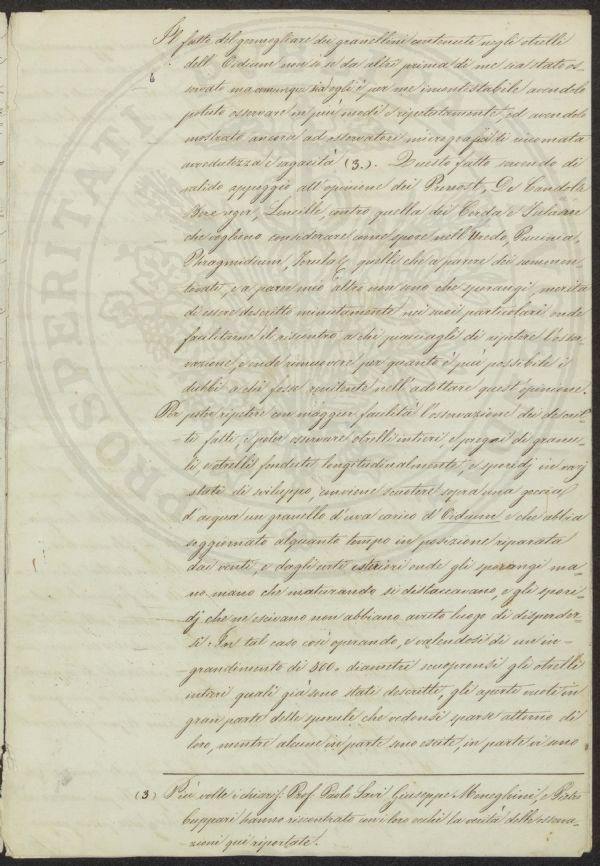 Il fatto del germogliare dei granellini contenuti negli otrelli
dell'Oidium non so se da altri prima di me sia stato os-
servato ma comunque sia egli è per me incontestabile avendolo
potuto osservare in più modi e ripetutamente, ed avendolo
mostrato ancora ad osservatori micrografisti di rinomata
avvedutezza e sagacità (3.). Questo fatto servendo di
valido appoggio all'opinione dei Prevost, De Candolle
Leveille contro quella dei Corda e Tulasne
che vogliono considerare come spore nell'Uredo, Puccinia,
Phragmidium, Torula, quelle che a parere dei sommen-
tovati, e a parer mio altro non sono che sporangi, merita
di essere descritto minutamente nei suoi particolari onde
facilitarne il riscontro a chi piacciagli di ripetere l'osser-
vazione, e onde rimuovere per quanto è più possibile i
dubbi a chi fosse renitente nell'adottare quest'opinione.
Per poter ripetere con maggior facilità l'osservazione dei descrit-
-ti fatti, e poter osservare otrelli intieri, e pregni di granel-
li e otrelli fenduti longitudinalmente, e sporidj in varj
stati di sviluppo, conviene scuotere sopra una goccia
d'acqua un granello d'uva carico d'Oidium e che abbia
soggiornato alquanto tempo in posizione riparata
dai venti, e dagli urti esteriori onde gli sporangi ma-
no mano che maturando si distaccavano, e gli spori-
dj che ne escivano non abbiano avuto luogo di disperder-
si. In tal caso così operando, e valendosi di un in-
-grandimento di 300. diametri scuopronsi gli otrelli
intieri quali già sono stati descritti, gli aperti vuoti in
gran parte delle sporule che vedonsi sparse attorno di
loro, mentre alcune in parte sono escite, in parte vi sono
(3) Più volte i chiariss: Prof. Paolo Savi Giuseppe Meneghini, e Pietro
Cuppari hanno riscontrato con i loro occhi la verità delle osserva-
-zioni qui riportate.
PROSPERITATI